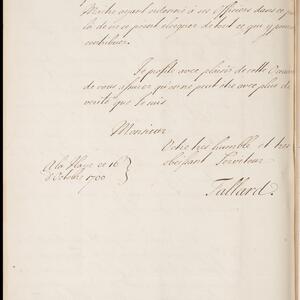 Maitre ayant ordonné à ses Officiers dans ce
la de ne se point eloigner de tout ce qui y
contribuer.
Je profite avec plaisir de cette
de vous assurer qu'on ne peut être avec plus de
verité que je suis
Monsieur
Votre tres humble et tres
obeissant Serviteur
Tallard.
A la Haye ce 16
d'Octobre 1700